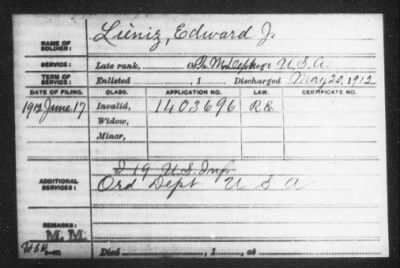 NAME OF SOLDIER: Lieniz, Edward J.
SERVICE: Late rank, Q. M. Dept U.S.A
TERM OF SERVICE: Enlisted , 1 Discharged May 20, 1912
DATE OF FILING. CLASS. APPLICATION NO. LAW. CERTIFICATE NO.
1912 June 17 Invalid, 1403696 R.E.
Widow,
Minor,
ADDITIONAL SERVICES: I 19 U.S. Inf
Ord Dept U S A
REMARKS:
M. M.
Died , 1 , at